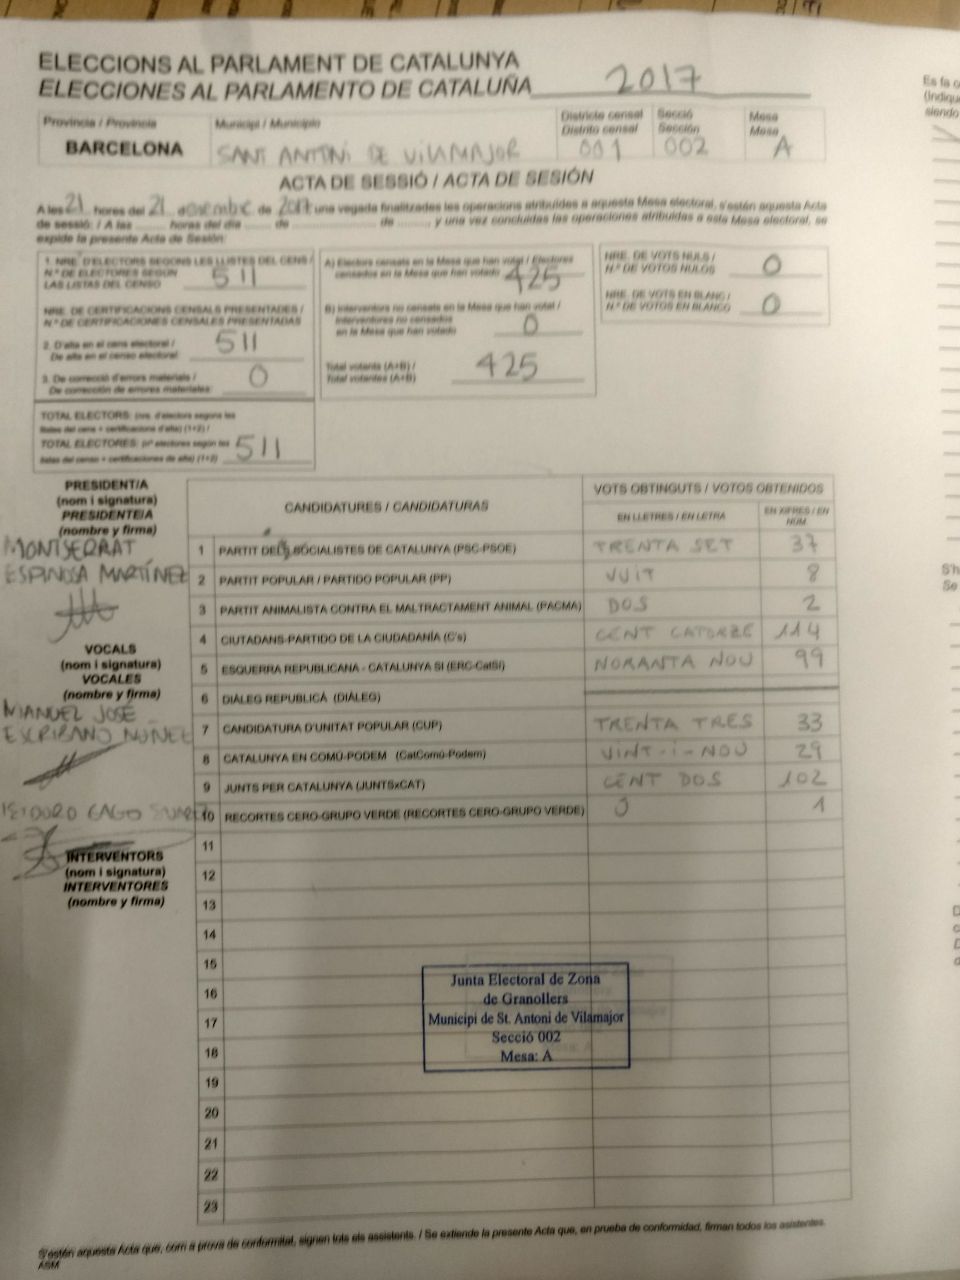 ELECCIONS AL PARLAMENT DE CATALUNYA
ELECCIONES AL PARLAMENTO DE CATALUÑA 2017
Província / Provincia
BARCELONA
Municipi / Municipio
SANT ANTONI DE VILAMAJOR
Districte censal
Distrito censal
001
Secció
Sección
002
Mesa
Mesa
A
ACTA DE SESSIÓ / ACTA DE SESIÓN
A les 21 hores del 21 desembre de 2017 una vegada finalitzades les operacions atribuïdes a aquesta Mesa electoral, s'estén aquesta Acta
de sessió: / A las ........ horas del día ........ de ........ de ........ y una vez concluidas las operaciones atribuidas a esta Mesa electoral, se
expide la presente Acta de Sesión:
1. NRE. D'ELECTORS SEGONS LES LLISTES DEL CENS /
N.º DE ELECTORES SEGÚN
LAS LISTAS DEL CENSO 511
NRE. DE CERTIFICACIONS CENSALS PRESENTADES /
N.º DE CERTIFICACIONES CENSALES PRESENTADAS
2. D'alta en el cens electoral /
De alta en el censo electoral: 511
3. De correcció d'errors materials /
De corrección de errores materiales: 0
TOTAL ELECTORS: (nre. d'electors segons les
llistes del cens + certificacions d'alta) (1+2) /
TOTAL ELECTORES: (nº electores según las
listas del censo + certificaciones de alta) (1+2) 511
A) Electors censats en la Mesa que han votat / Electores
censados en la Mesa que han votado 425
B) Interventors no censats en la Mesa que han votat /
Interventores no censados
en la Mesa que han votado 0
Total votants (A+B) /
Total votantes (A+B) 425
NRE. DE VOTS NULS /
N.º DE VOTOS NULOS 0
NRE. DE VOTS EN BLANC /
N.º DE VOTOS EN BLANCO 0
PRESIDENT/A
(nom i signatura)
PRESIDENTE/A
(nombre y firma)
MONTSERRAT
ESPINOSA MARTÍNEZ
VOCALS
(nom i signatura)
VOCALES
(nombre y firma)
MANUEL JOSÉ
ESCRIBANO NUÑEZ
INTERVENTORS
(nom i signatura)
INTERVENTORES
(nombre y firma)
CANDIDATURES / CANDIDATURAS
VOTS OBTINGUTS / VOTOS OBTENIDOS
EN LLETRES / EN LETRA
EN XIFRES / EN NÚM.
1 PARTIT DELS SOCIALISTES DE CATALUNYA (PSC-PSOE) TRENTA SET 37
2 PARTIT POPULAR / PARTIDO POPULAR (PP) VUIT 8
3 PARTIT ANIMALISTA CONTRA EL MALTRACTAMENT ANIMAL (PACMA) DOS 2
4 CIUTADANS-PARTIDO DE LA CIUDADANÍA (C's) CENT CATORZE 114
5 ESQUERRA REPUBLICANA - CATALUNYA SÍ (ERC-CatSí) NORANTA NOU 99
6 DIÀLEG REPUBLICÀ (DIÀLEG)
7 CANDIDATURA D'UNITAT POPULAR (CUP) TRENTA TRES 33
8 CATALUNYA EN COMÚ-PODEM (CatComú-Podem) VINT-I-NOU 29
9 JUNTS PER CATALUNYA (JUNTSxCAT) CENT DOS 102
10 RECORTES CERO-GRUPO VERDE (RECORTES CERO-GRUPO VERDE) 1
11
12
13
14
15
16
17
18
19
20
21
22
23
Junta Electoral de Zona
de Granollers
Municipi de St. Antoni de Vilamajor
Secció 002
Mesa: A
S'estén aquesta Acta que, com a prova de conformitat, signen tots els assistents. / Se extiende la presente Acta que, en prueba de conformidad, firman todos los asistentes.